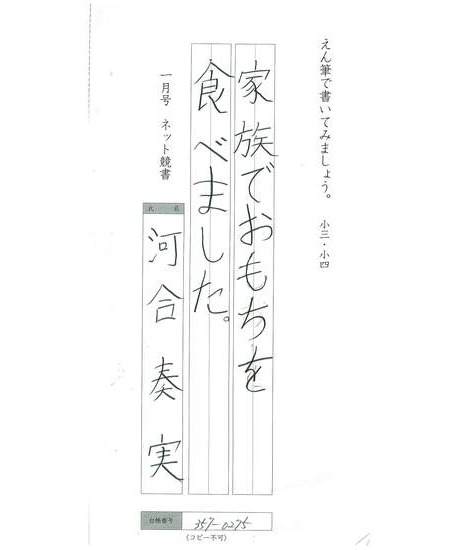 えん筆で書いてみましょう。 小三・小四
家族でおもちを
食べました。
一月号 ネット競書
氏 名
河合奏実
台帳番号
357-0275
(コピー不可)